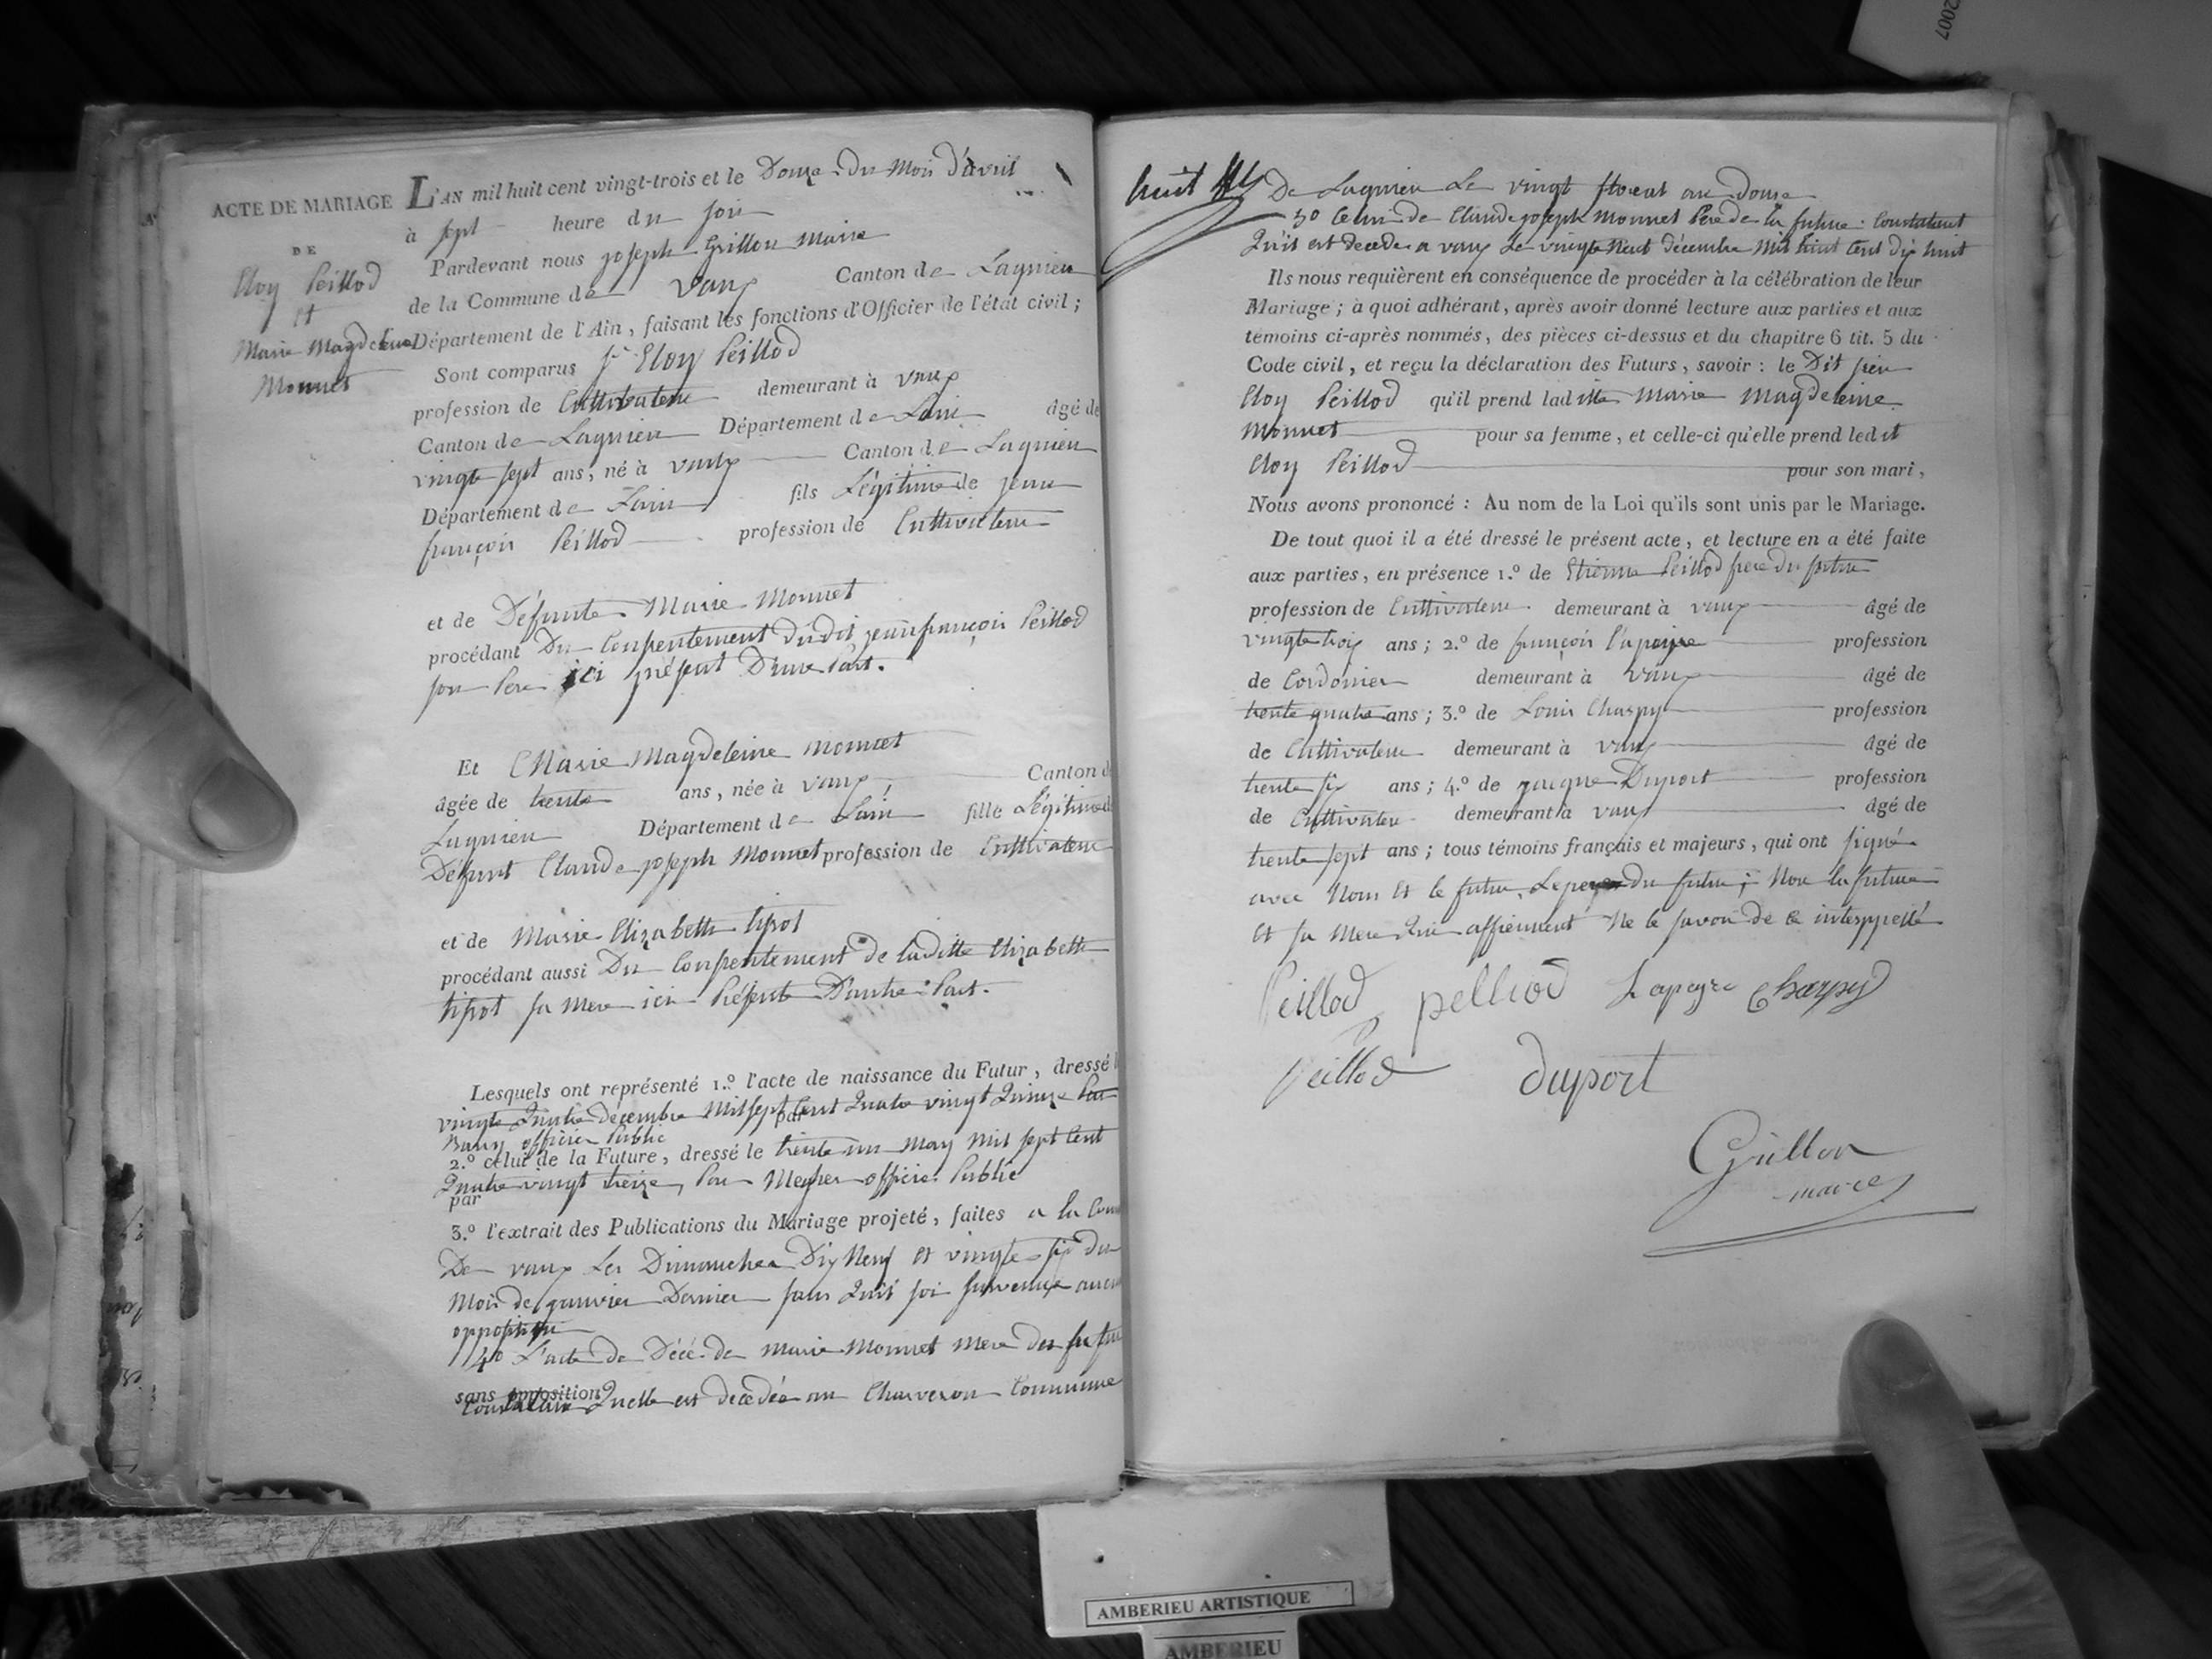 2007
ACTE DE MARIAGE
DE
Eloy Peillod
et
Marie Magdeleine
Monnet
L'AN mil huit cent vingt-trois et le Douze du Mois d'avril
à sept heure du soir
Pardevant nous joseph Grillon Maire
de la Commune de vaux Canton de Lagnieu
Département de l'Ain, faisant les fonctions d'Officier de l'état civil;
Sont comparus sr Eloy Peillod
profession de Cultivateur demeurant à vaux
Canton de Lagnieu Département de Lain âgé de
vingt sept ans, né à vaux Canton de Lagnieu
Département de Lain fils Légitime de jean
françois Peillod profession de Cultivateur
et de Défunte Marie Monnet
procédant Du Consentement dudit jean françois Peillod
son Pere ici présent D'une Part.
Et Marie Magdeleine Monnet
âgée de trente ans, née à vaux Canton de
Lagnieu Département de Lain fille Légitime de
Défunt Claude joseph Monnet profession de Cultivateur
et de Marie Elizabeth tisot
procédant aussi Du Consentement de laditte Elizabeth
tisot sa Mere ici Présente D'autre Part.
Lesquels ont représenté 1.º l'acte de naissance du Futur, dressé l
vingt Quatre décembre Mil sept Cent Quatre vingt Quinze Par
par
officier Public
2.º celui de la Future, dressé le trente un May Mil sept Cent
Quatre vingt treize, Par officier Public
par
3.º l'extrait des Publications du Mariage projeté, faites a la Com
De vaux Les Dimanches Dix Neuf et vingt six du
Mois de janvier Dernier sans Quil soi survenue aucu
opposition
4º L'acte de Décé de Marie Monnet Mere du futur
sans opposition
Constatant Quelle est decedée au Charveron Commune
huit
De Lagnieu Le vingt an douze
5º Celui de Claude joseph Monnet Pere de la future: Constatant
Qu'il est decede a vaux Le vingt Neuf décembre Mil huit Cent dix huit
Ils nous requièrent en conséquence de procéder à la célébration de leur
Mariage; à quoi adhérant, après avoir donné lecture aux parties et aux
témoins ci-après nommés, des pièces ci-dessus et du chapitre 6 tit. 5 du
Code civil, et reçu la déclaration des Futurs, savoir: le Dit sieur
Eloy Peillod qu'il prend laditte Marie Magdeleine
Monnet pour sa femme, et celle-ci qu'elle prend ledit
Eloy Peillod pour son mari,
Nous avons prononcé: Au nom de la Loi qu'ils sont unis par le Mariage.
De tout quoi il a été dressé le présent acte, et lecture en a été faite
aux parties, en présence 1.º de Etienne Peillod frere du futur
profession de Cultivateur demeurant à vaux âgé de
vingt trois ans; 2.º de françois Lapeyre profession
de Cordonier demeurant à vaux âgé de
trente quatre ans; 3.º de Louis Charpy profession
de Cultivateur demeurant à vaux âgé de
trente six ans; 4.º de jacque Duport profession
de Cultivateur demeurant à vaux âgé de
trente sept ans; tous témoins français et majeurs, qui ont signé
avec Nous et le futur, Le pere du futur; Non la future
et sa Mere Qui affirment Ne le savoir de ce interppellé
Peillod pelliod Lapeyre Charpy
Peillod duport
Grillon
maire
AMBERIEU ARTISTIQUE
AMBERIEU